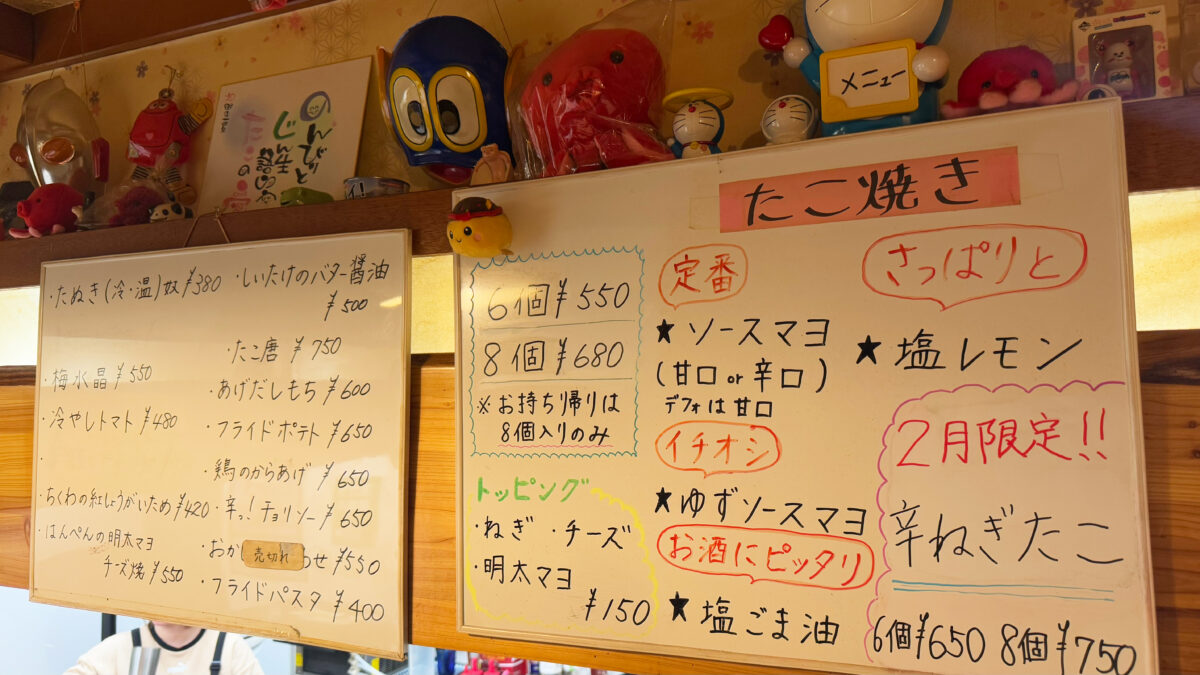 のんびりと
じん生
メニュー
・たぬき(冷・温)奴¥380
・しいたけのバター醤油
¥500
・たこ唐 ¥750
・梅水晶 ¥550
・あげだしもち ¥600
・冷やしトマト ¥480
・フライドポテト ¥650
・鶏のからあげ ¥650
・ちくわの紅しょうがいため¥420
・辛っ!チョリソー ¥650
・はんぺんの明太マヨ
チーズ焼 ¥550
・おか
売切れ
わせ ¥550
・フライドパスタ ¥400
たこ焼き
6個¥550
8個¥680
※お持ち帰りは
8個入りのみ
トッピング
・ねぎ ・チーズ
・明太マヨ
¥150
定番
★ソースマヨ
(甘口or辛口)
デフォは甘口
イチオシ
★ゆずソースマヨ
お酒にピッタリ
★塩ごま油
さっぱりと
★塩レモン
2月限定!!
辛ねぎたこ
6個¥650 8個¥750